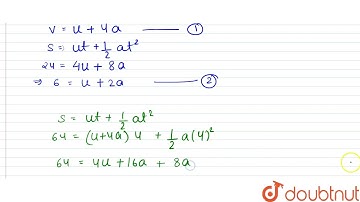 v = u + 4a — ①
s = ut + 1/2 at²
24 = 4u + 8a
⇒ 6 = u + 2a — ②
s = ut + 1/2 at²
64 = (u+4a) 4 + 1/2 a(4)²
64 = 4u + 16a + 8a
doubtnut